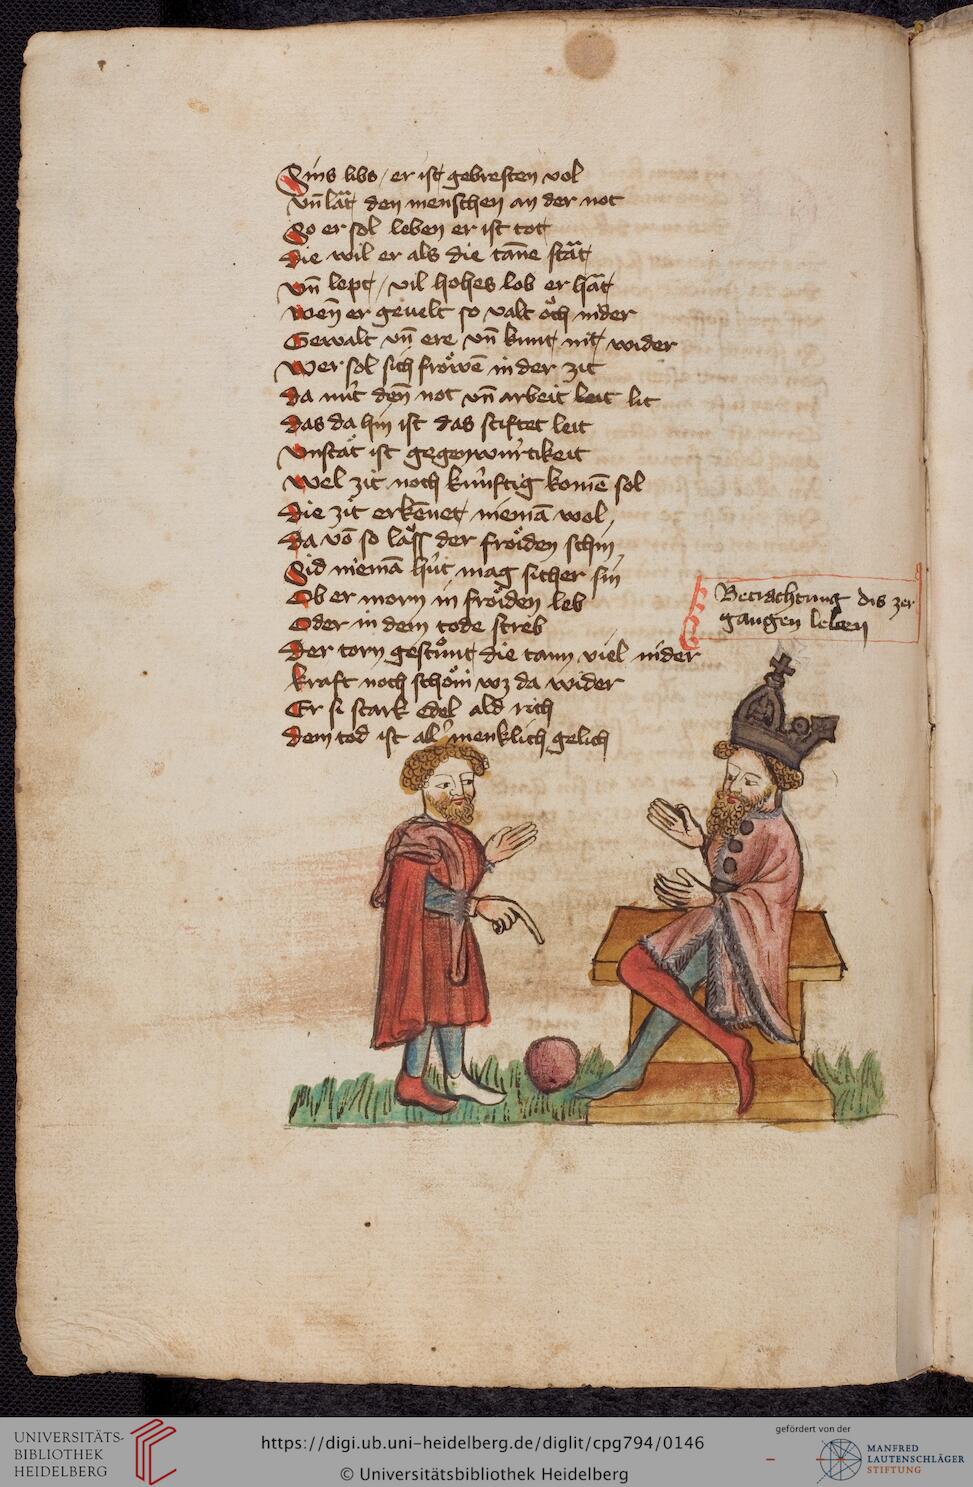 Sins libs / er ist gebresten vol
vn̄ lāt den menschen an der not
So er sol leben er ist tot
die wil er als die tan̄e stāt
vn̄ lept / vil hohes lob er hāt
wen̄ er geuelt so valt och nider
Gewalt vn̄ ere vn̄ kunt nit wider
Wer sol sich frowē in der zit
da nut den̄ not vn̄ arbeit leit lit
das da hin ist das stiftet leit
vnstāt ist gegenwurtikeit
wel zit noch kunftig komē sol
die zit erkēnet niemā wol
da vō so lāss der froiden schin
Sid niemā hut mag sicher sin
Ob er morn in froiden leb
Oder in dem tode streb
Betrachtung dis zer
gangen leben
Der torn gestunt die tann viel nider
kraft noch schoni wz da wider
Er si stark edel ald rich
dem tod ist al menklich gelich
UNIVERSITÄTS-
BIBLIOTHEK
HEIDELBERG
https://digi.ub.uni-heidelberg.de/diglit/cpg794/0146
© Universitätsbibliothek Heidelberg
gefördert von der
MANFRED
LAUTENSCHLÄGER
STIFTUNG